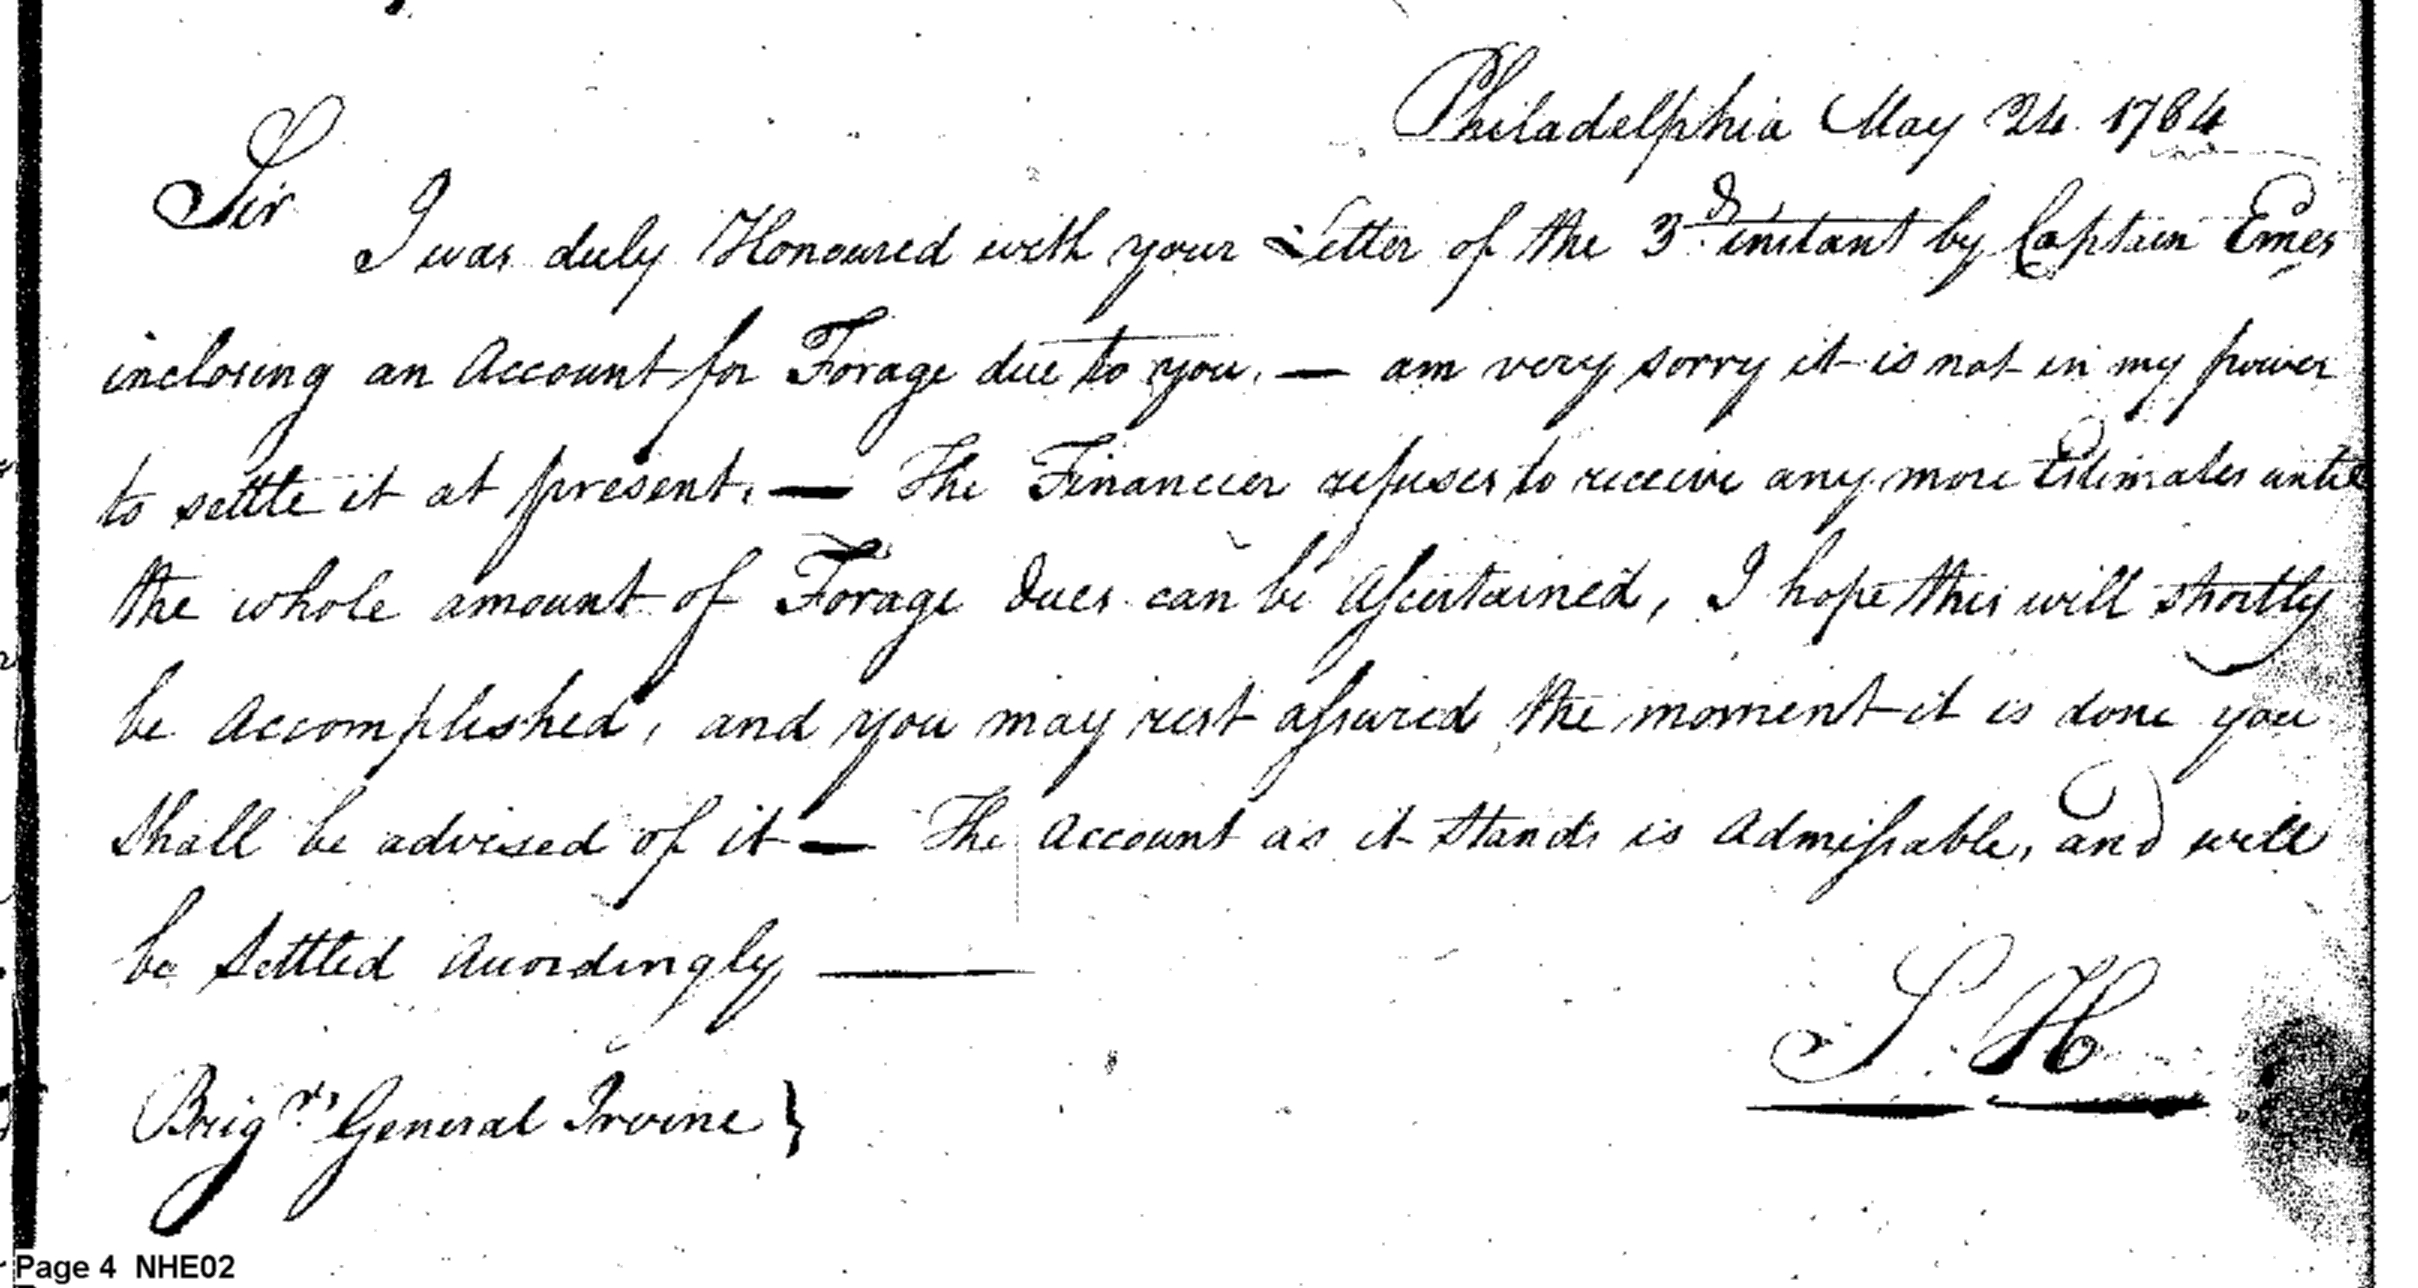 Philadelphia May 24. 1784
Sir
I was duly Honoured with your Letter of the 3d. instant by Captain Emes
inclosing an Account for Forage due to you. — am very sorry it is not in my power
to settle it at present. — The Financier refuses to receive any more Estimates until
the whole amount of Forage dues can be Ascertained, I hope this will shortly
be Accomplished, and you may rest assured the moment it is done you
shall be advised of it — The Account as it stands is Admissable, and will
be settled Accordingly —
S. H
Brigr. General Irvine }
Page 4 NHE02